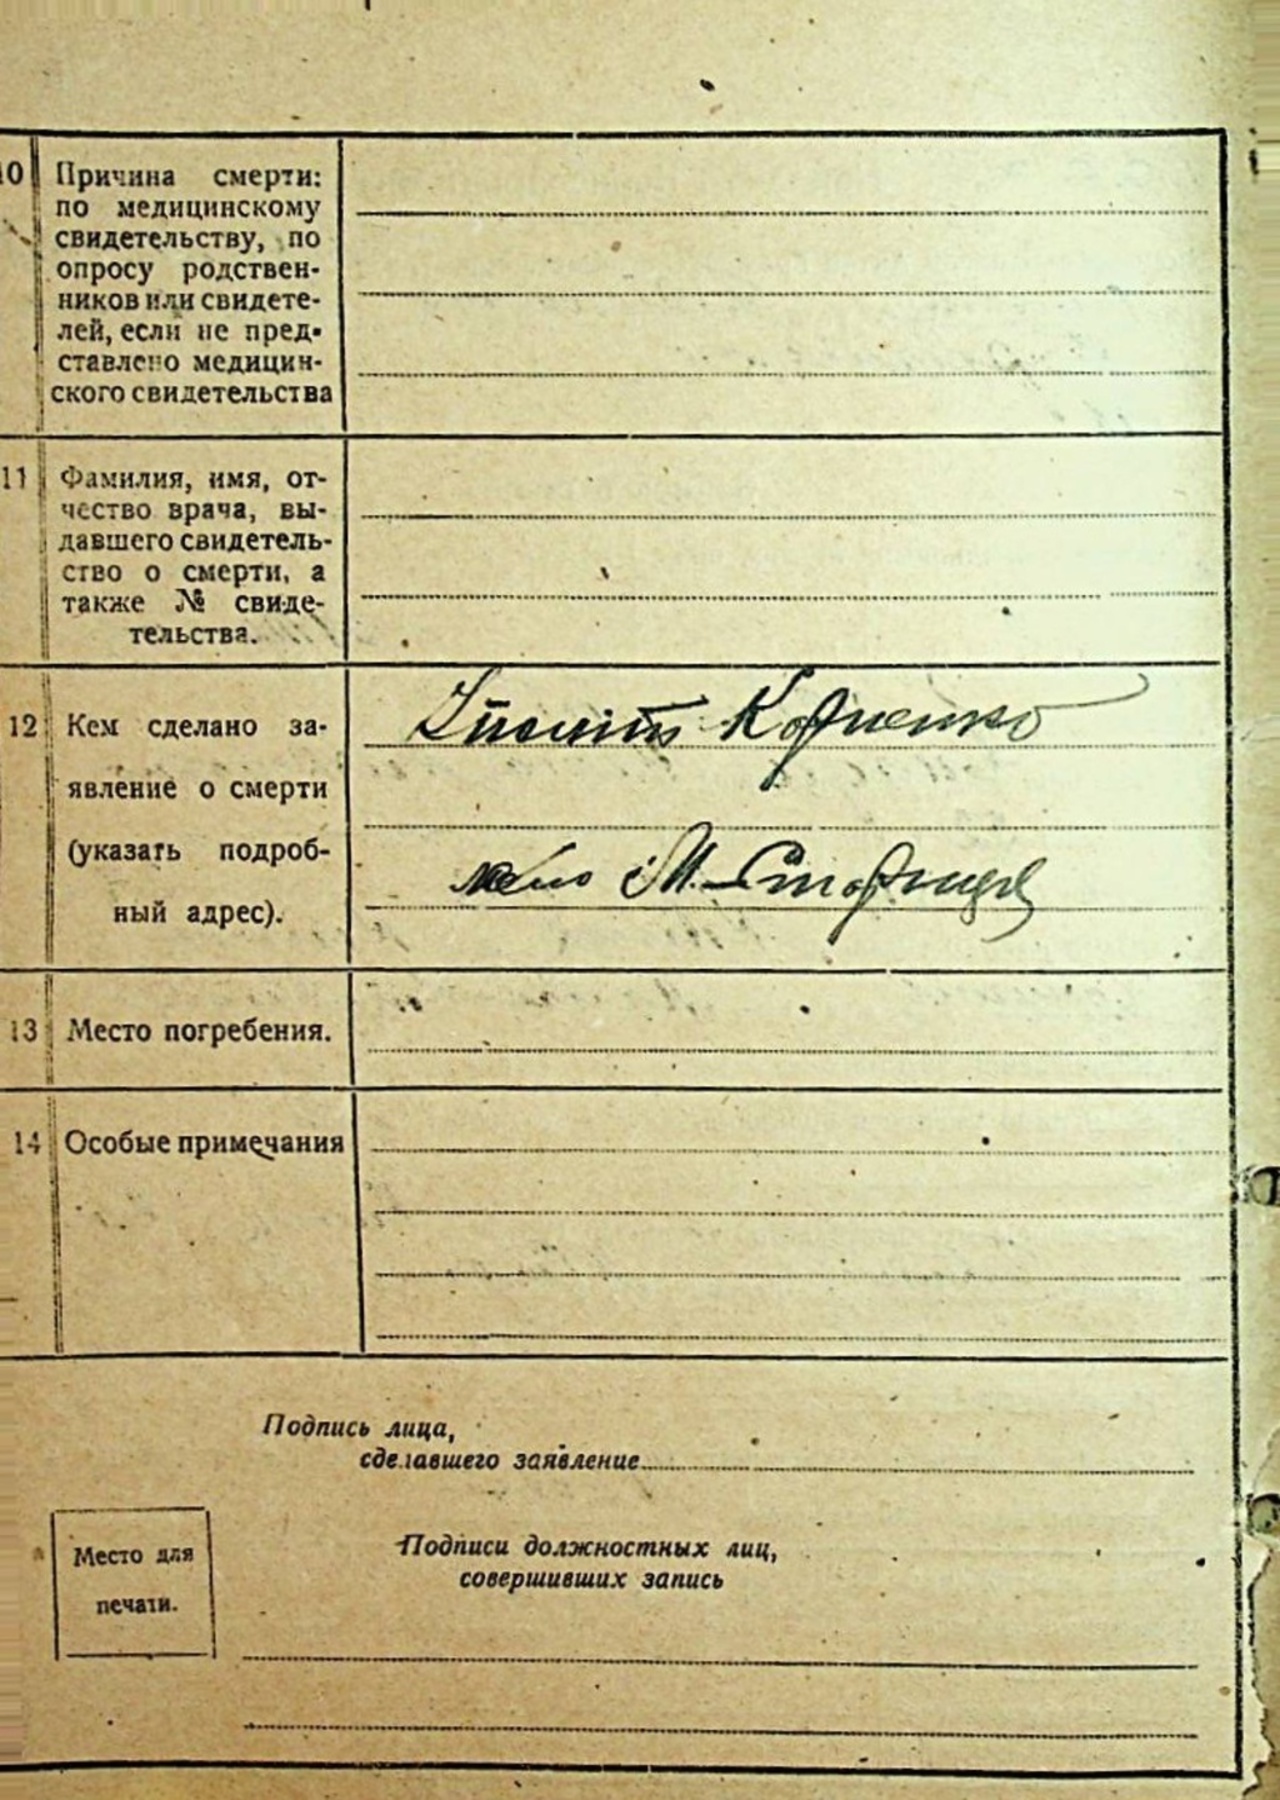 10 Причина смерти:
по медицинскому
свидетельству, по
опросу родствен-
ников или свидете-
лей, если не пред-
ставлено медицин-
ского свидетельства
11 Фамилия, имя, от-
чество врача, вы-
давшего свидетель-
ство о смерти, а
также № свиде-
тельства.
12 Кем сделано за-
явление о смерти
(указать подроб-
ный адрес).
Корненко
М.
13 Место погребения.
14 Особые примечания
Подпись лица,
сделавшего заявление
Подписи должностных лиц,
совершивших запись
Место для
печати.